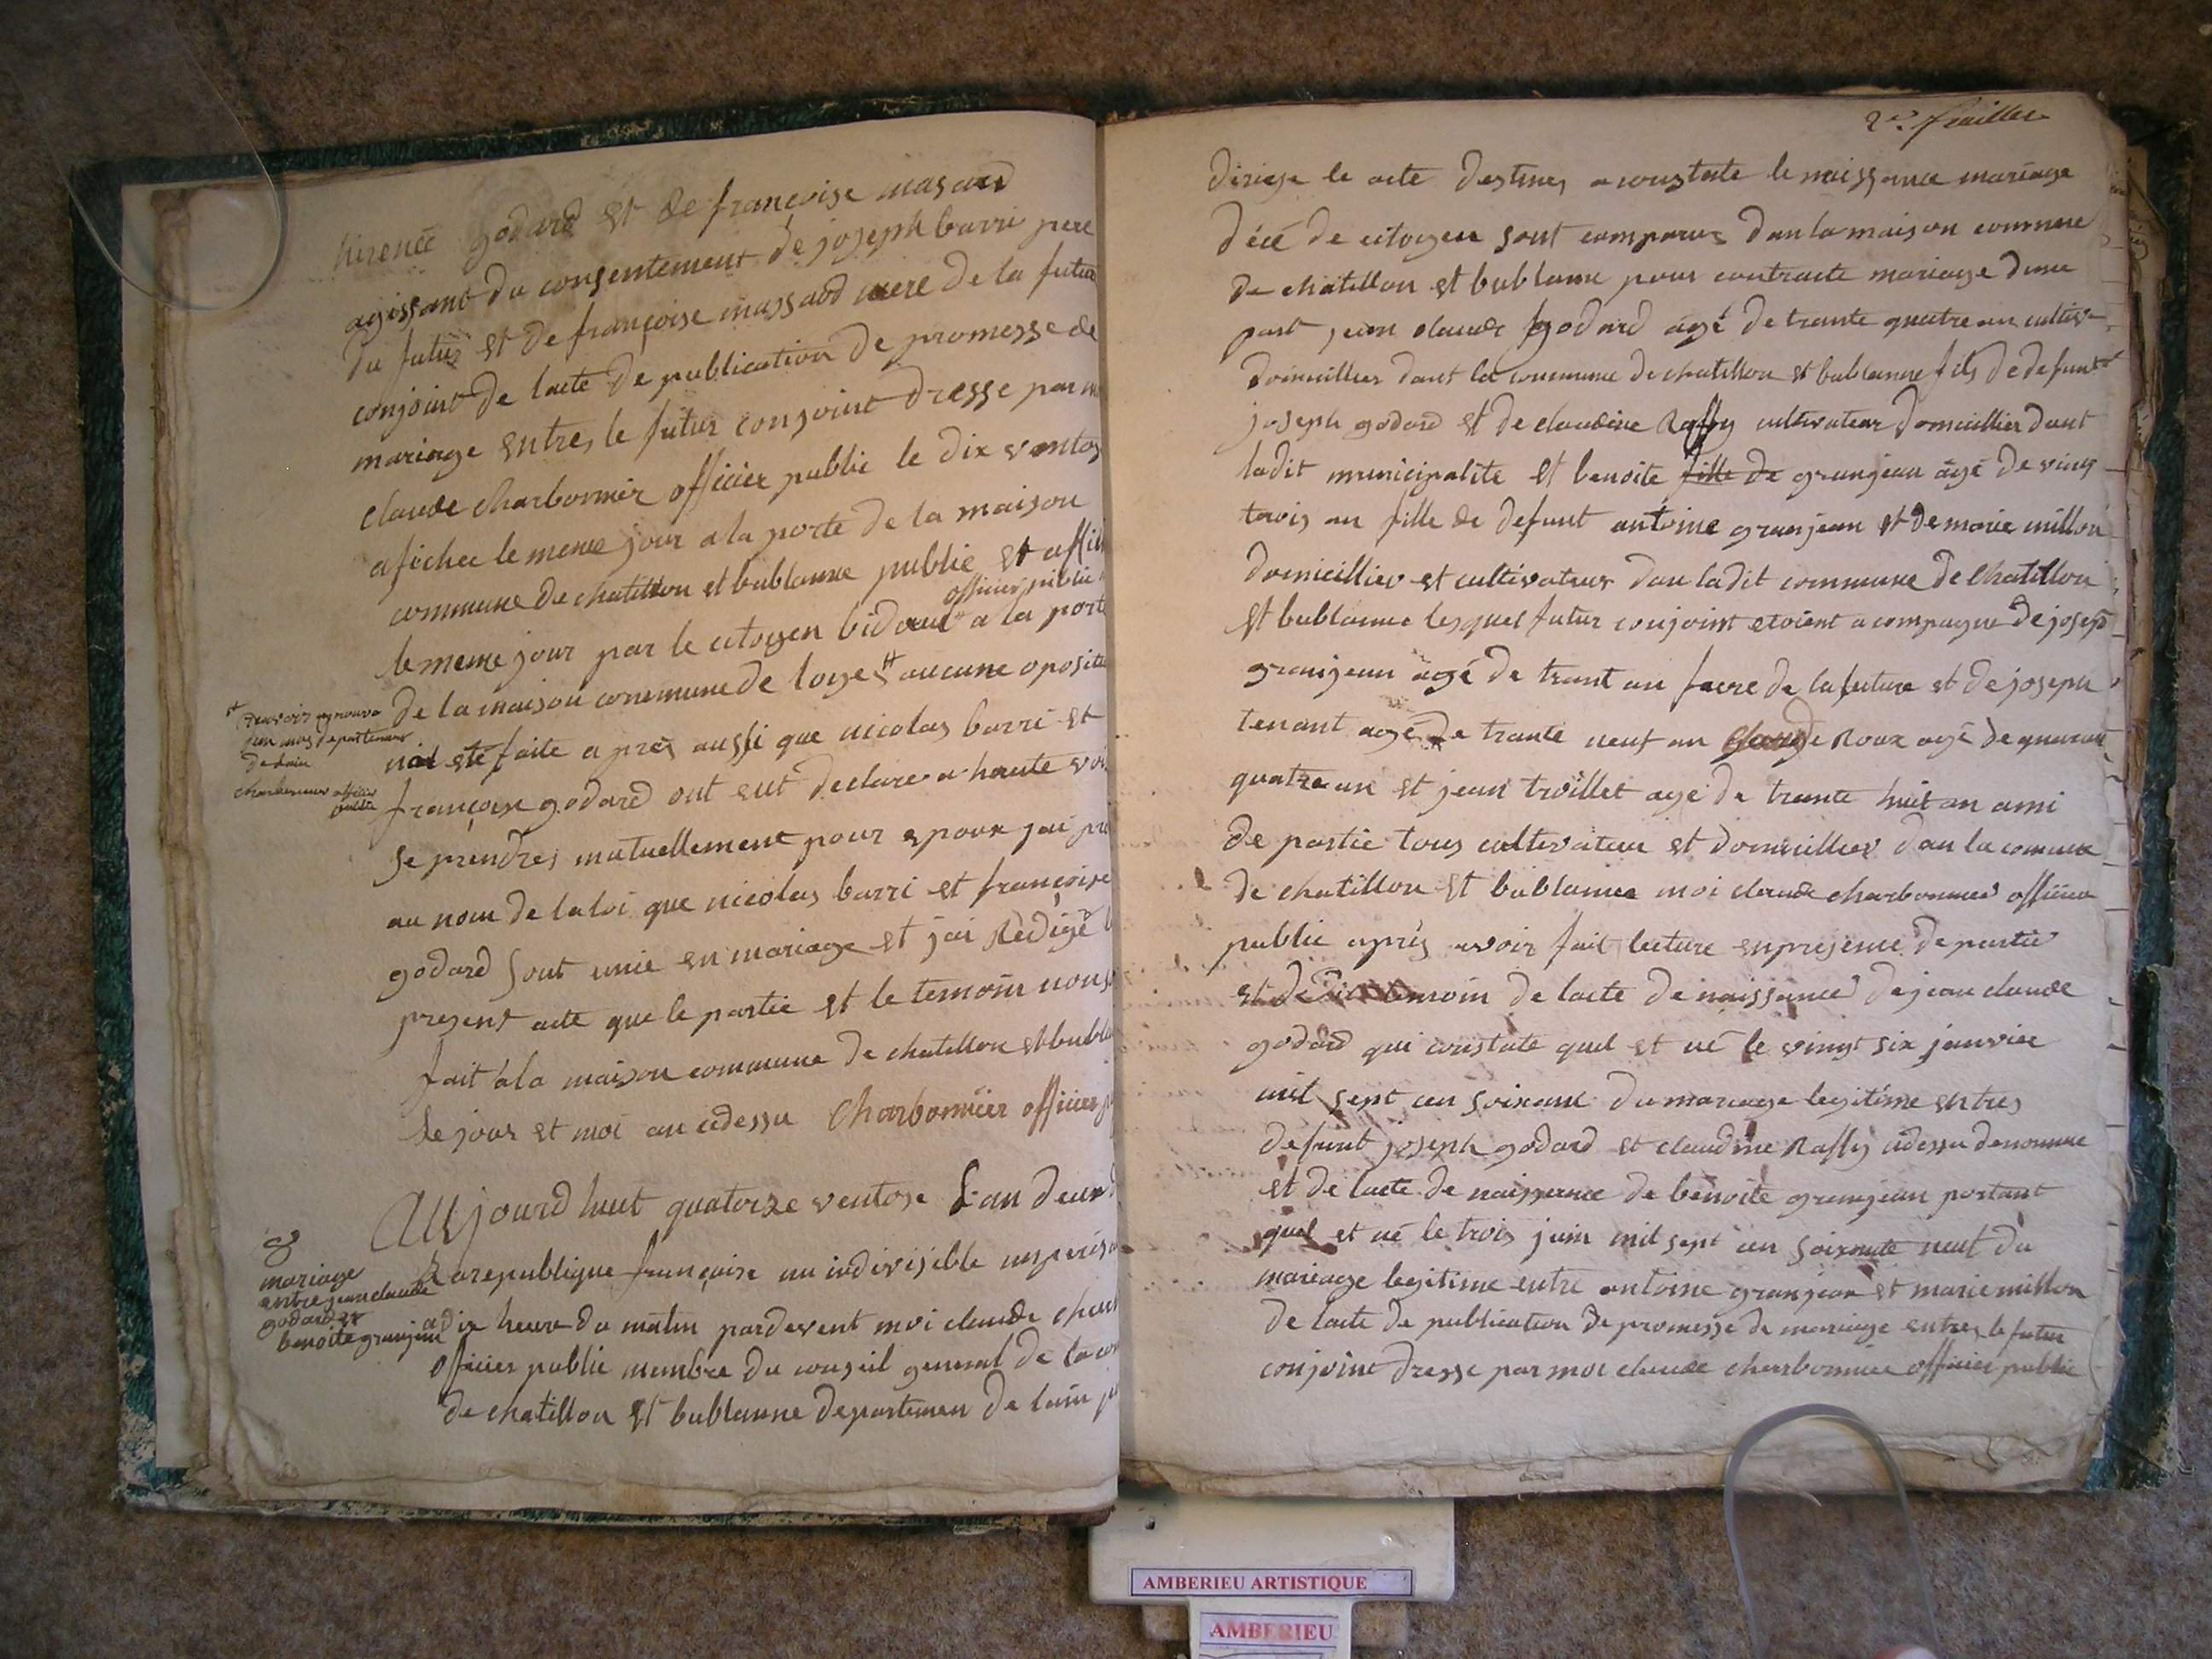 hirenée godard et de françoise masard
agissant du consentement de joseph barri pere
du futur et de françoise massard mere de la future
conjoint de lacte de publication de promesse de
mariage entres le futur conjoint dresse par
claude charbonnier officier public le dix ventos
afichee le meme jour a la porte de la maison
commune de chatillon et bublanne public et affi
officier public
le meme jour par le citoyen bidaut a la porte
de la maison commune de loyes # aucune oposit
# renvoir aprouvo
departemen
de lain
charbonnier officier
public
nai eté faite apres aussi que nicolas barri et
françoise godard ont eut declare a haute voi
se prendres mutuellement pour epoux jai pr
au nom de la loi que nicolas barri et françoise
godard sont unie en mariage et jai redigé l
present acte que le partie et le temoin nons
fait a la maison commune de chatillon et bubla
le jour et moi an cidessu charbonnier officier p
8
mariage
entre jean claude
godard et
benoite granjean
Aujourdhuit quatorze ventose lan deux d
la republique française un indivisible imperis
a dix heure du matin pardevent moi claude char
officier public membre du conseil general de la com
de chatillon et bublanne departemen de lain p
2e. feuillet
dirige le acte destines a constate le naissance mariage
décé de citoyen sont comparus dan la maison commune
de chatillon et bublanne pour contracte mariage dune
part jean claude godard agé de trante quatre an cultiv
domicillier dant la commune de chatillon et bublanne fils de defunt
joseph godard et de claudine Raffy cultivateur domicillier dant
ladit municipalite et benoite fille de granjean agé de ving
trois an fille de defunt antoine granjean et de marie millon
domicillier et cultivateur dan ladit commune de chatillon
et bublanne lesquel futur conjoint etoient acompagne de josep
granjean agé de trant an frere de la future et de joseph
tenant agé de trante neuf an claude Roux agé de quarant
quatre an et jean troillet agé de trante huit an ami
de partie tous cultivateur et domicillier dan la comune
de chatillon et bublanne moi claude charbonnier officier
public aprés avoir fait lecture en presence de partie
et de temoin de lacte de naissance de jean claude
godard qui constate quel et né le vingt six janvier
mil sept cen soixant du mariage legitime entres
defunt joseph godard et claudine Raffy cidessu denomme
et de lacte de naissance de benoite granjean portant
quel et né le trois juin mil sept cen soixante neuf du
mariage legitime entre antoine granjean et marie millon
de lacte de publication de promesse de mariage entres le futur
conjoint dresse par moi claude charbonnier officier public
AMBERIEU ARTISTIQUE
AMBERIEU